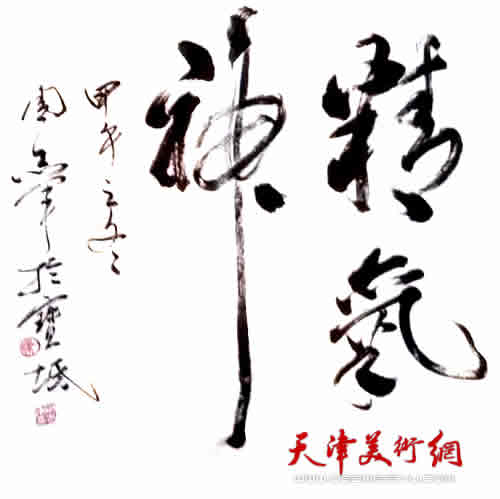 精氣
神
甲午冬
周於寶坻
天津美術網